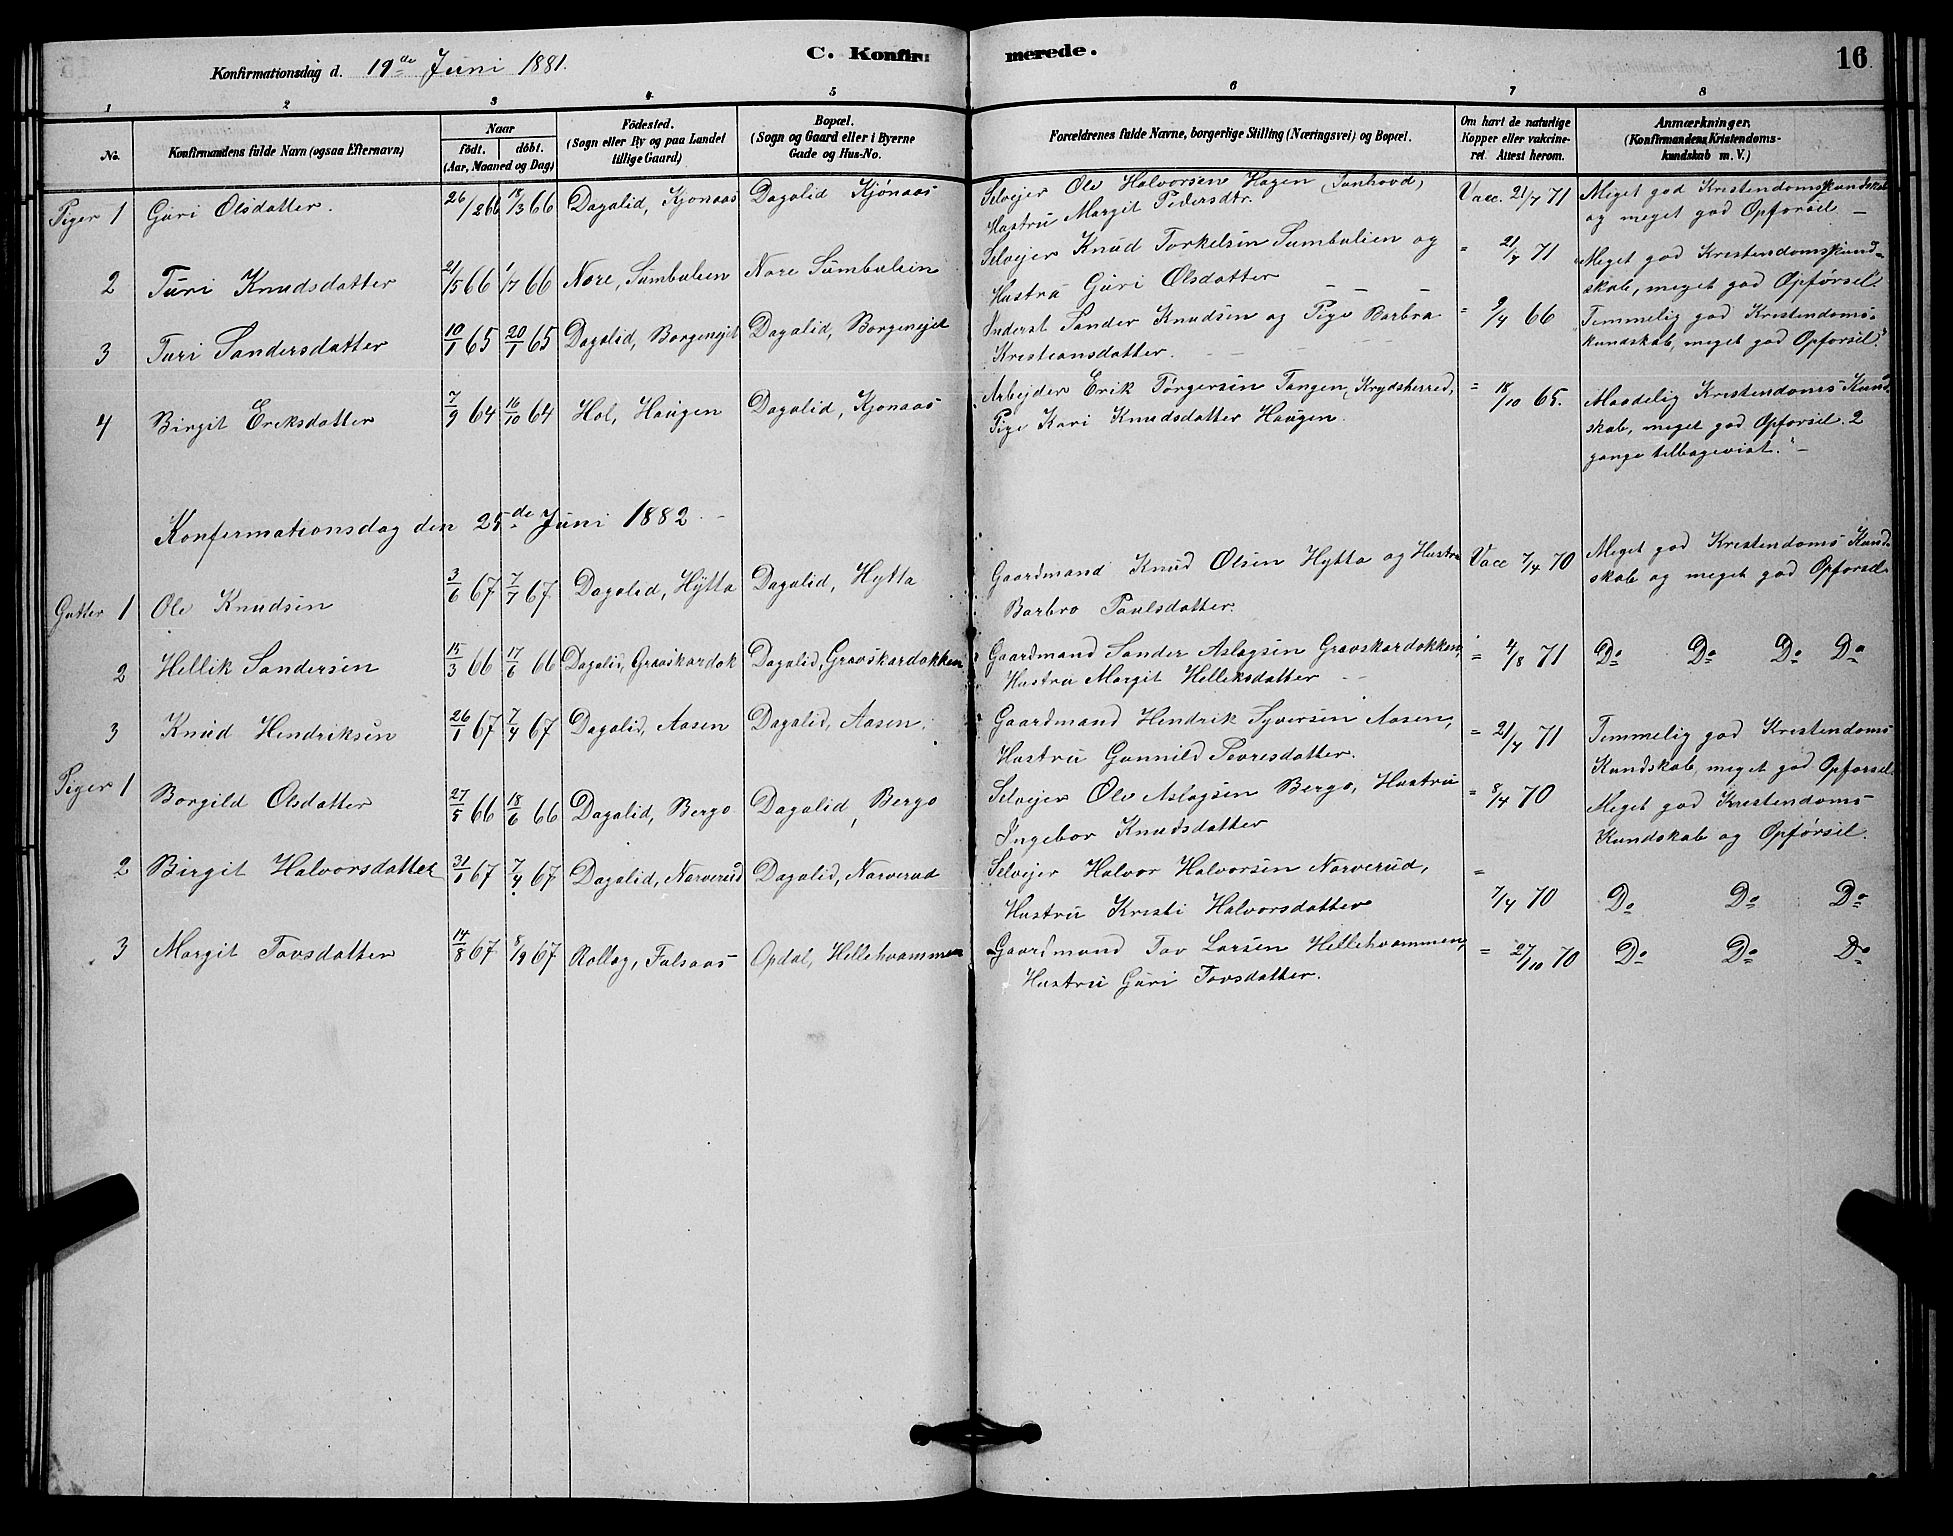 Konfirmationsdag d. 19de Juni 1881.
C. Konfir: merede.
16
1 2 3 4 5 6 7 8
No.
Konfirmandens fulde Navn (ogsaa Efternavn)
Naar
födt. döbt.
(Aar, Maaned og Dag)
Födested.
(Sogn eller By og paa Landet
tillige Gaard)
Bopæl.
(Sogn og Gaard eller i Byerne
Gade og Hus-No.
Forældrenes fulde Navne, borgerlige Stilling (Næringsvei) og Bopæl.
Om havt de naturlige
Kopper eller vakcine-
ret. Attest herom.
Anmærkninger.
(Konfirmandens Kristendoms-
kundskab m. V.)
Piger 1 Guri Olsdatter. 26/2 66 18/3 66 Dagalid, Kjonaas Dagalid Kjønaas Selvejer Ole Halvorsen Hagen, Tunhovd, Vacc. 21/7 71 Meget god Kristendomskundskab
Hustru Margit Pedersdtr. og meget god Opførsel —
2 Turi Knudsdatter 21/5 66 1/7 66 Nore, Sumbulien Nore Sumbulein Selvejer Knud Torkelsen Sumbulien og = 21/7 71 Meget god Kristendomskund-
Hustru Guri Olsdatter skab, meget god Opførsel.
3 Turi Sandersdatter 10/1 65 20/1 65 Dagalid, Borgenejet Dagalid, Borgenejet Inderst Sander Knudsen og Pige Barbra = 9/4 66 Temmelig god Kristendoms-
Kristiansdatter. kundskab, meget god Opførsel.
4 Birgit Eriksdatter 7/9 64 16/10 64 Hol, Haugen Dagalid, Kjonaas Arbejder Erik Torgersen Tangen, Krydsherred, = 18/10 65. Maadelig Kristendoms Kund-
Pige Kari Knudsdatter Haugen. skab, meget god Opførsel. 2
gange tilbagevist. —
Konfirmationsdag den 25de Juni 1882. —
Gutter 1 Ole Knudsen 3/6 67 7/7 67 Dagalid, Hytta Dagalid, Hytta Gaardmand Knud Olsen Hytta og Hustru Vacc 7/4 70 Meget god Kristendoms Kund-
Barbro Paulsdatter. skab og meget god Opførsel.
2 Hellik Sandersen 15/3 66 17/6 66 Dagalid, Gravskardok Dagalid, Gravskardokken Gaardmand Sander Aslagsen Gravskardokken, = 4/8 71 Do Do Do Do
Hustru Margit Helliksdatter —
3 Knud Hendriksen 26/1 67 7/4 67 Dagalid, Aasen Dagalid, Aasen. Gaardmand Hendrik Syversen Aasen, = 21/7 71 Temmelig god Kristendoms
Hustru Gunnild Toresdatter. Kundskab, meget god Opførsel.
Piger 1 Borgild Olsdatter 27/5 66 18/6 66 Dagalid, Bergo Dagalid, Bergo Selvejer Ole Aslagsen Bergo, Hustru = 8/4 70 Meget god Kristendoms-
Ingebor Knudsdatter Kundskab og Opførsel.
2 Birgit Halvorsdatter 31/1 67 7/4 67 Dagalid, Narverud Dagalid, Narverud Selvejer Halvor Halvorsen Narverud, =
Hustru Kristi Halvorsdatter 7/4 70 Do Do Do
3 Margit Tovsdatter 14/8 67 8/9 67 Rollag, Fulsaas Opdal, Hellehvammen Gaardmand Tov Larsen Hellehvammen, = 27/10 70 Do Do Do
Hustru Guri Tovsdatter.